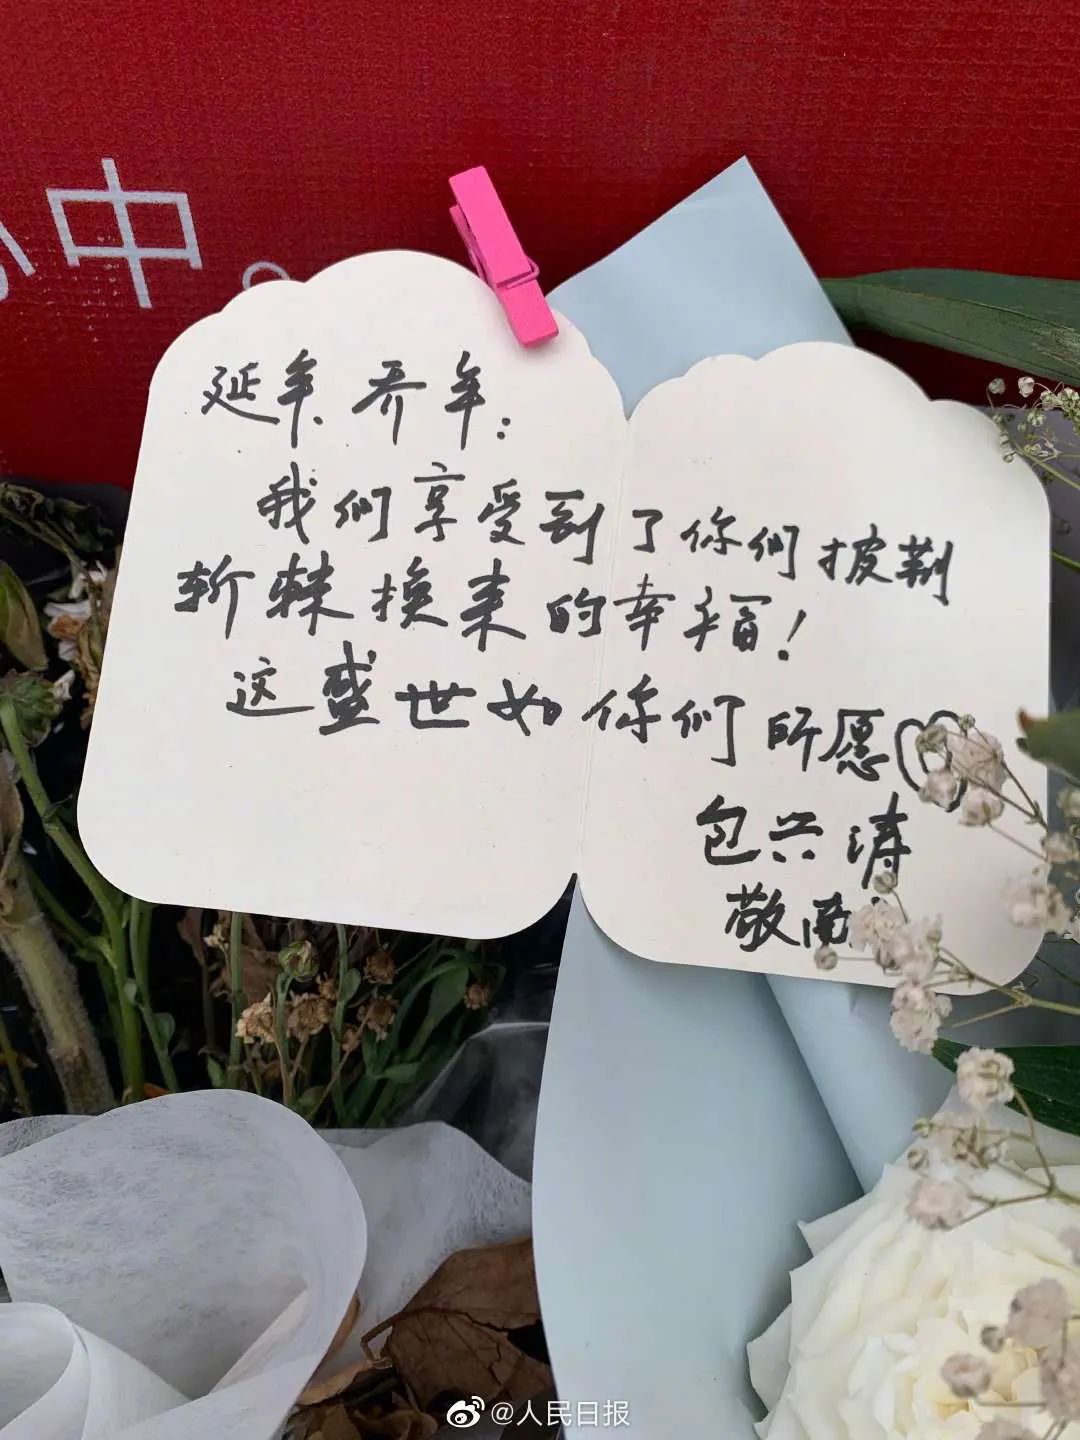 中。
延年、乔年：
我们享受到了你们披荆
斩棘换来的幸福！
这盛世如你们所愿
包兴涛
敬
@人民日报